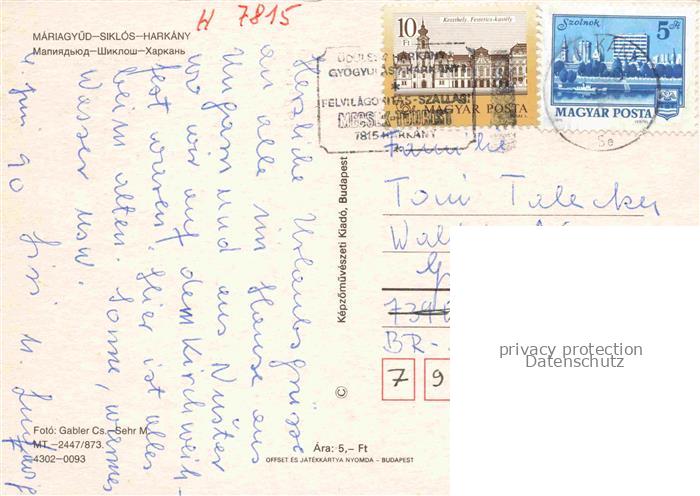 H 7815
MÁRIAGYŰD—SIKLÓS—HARKÁNY
Мапиядьюд—Шиклош—Харкань
10 Ft
Keszthely, Festetics-kastély
MAGYAR POSTA
Szolnok
5 Ft
MAGYAR POSTA
FELVILÁGOSÍTÁS-SZÁLLÁS:
MECSEK-TOURIST
7815 HARKÁNY
Herzliche Urlaubsgrüsse
an alle im Hause aus
Ungarn und aus Nüster
wo wir auf dem Kirchweih-
fest waren. Hier ist alles
beim alten. Sonne, warmes
Wasser usw.
Képzőművészeti Kiadó, Budapest
©
Familie
Toni
BR-
7 9
privacy protection
Datenschutz
Fotó: Gabler Cs.—Sehr M.
MT—2447/873.
4302-0093
Ára: 5,– Ft
OFFSET ÉS JÁTÉKKÁRTYA NYOMDA – BUDAPEST